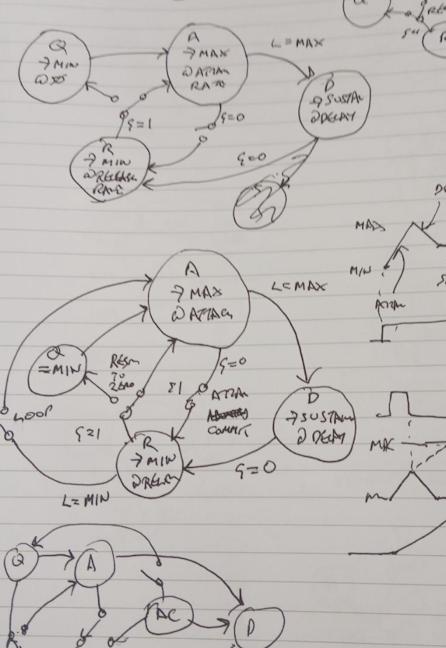 Q
→ MIN
A
→ MAX
@ ATTACK
RATE
L = MAX
D
→ SUSTAIN
@ DECAY
G=1
G=0
R
→ MIN
@ RELEASE
RATE
G=0
MAX
MIN
ATTACK
A
→ MAX
@ ATTACK
L = MAX
Q
= MIN
RESET
TO
ZERO
G=0
ATTACK
COMMIT
D
→ SUSTAIN
@ DECAY
LOOP
G=1
R
→ MIN
G=0
L = MIN
Q
A
AC
D